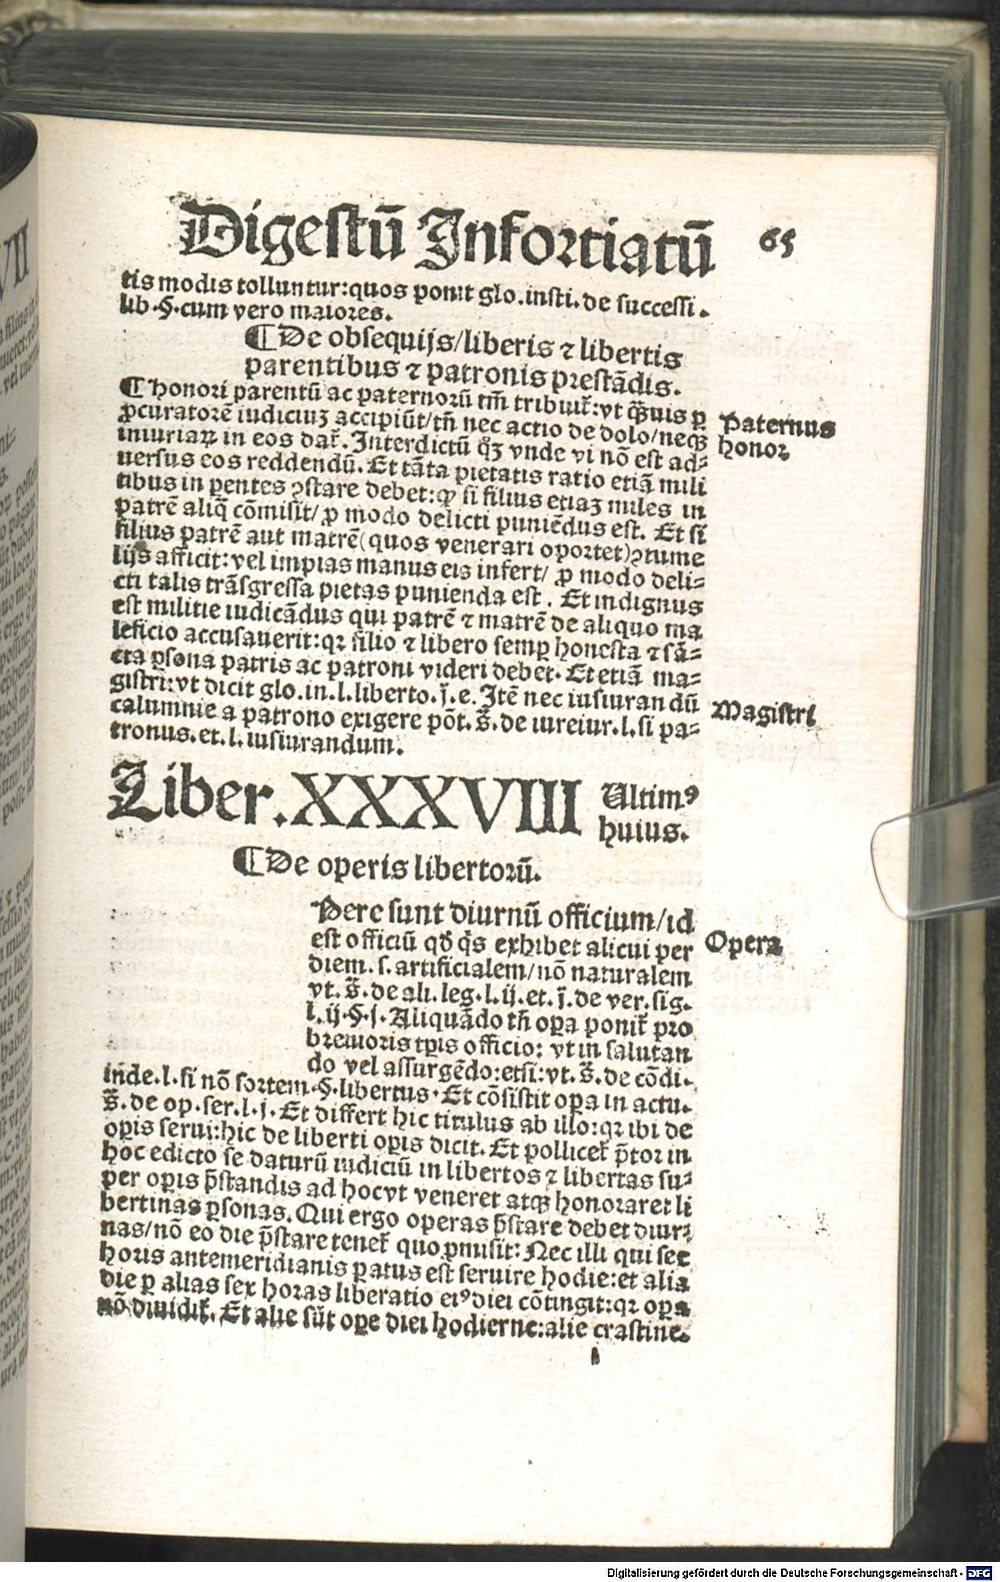 Digestū Infortiatū 65
tis modis tolluntur: quos ponit glo. insti. de successi.
lib. §. cum vero maiores.
¶ De obsequijs/liberis ⁊ libertis
parentibus ⁊ patronis prestādis.
¶ Honori parentū ac paternorū tm̄ tribuit᷑: vt q̄uis ꝑ
ꝓcuratorē iudiciuꝫ accipiūt/tn̄ nec actio de dolo/neqꝫ
iniuriaꝝ in eos dat᷑. Interdictū qꝫ vnde vi nō est ad-
uersus eos reddendū. Et tāta pietatis ratio etiā mili
tibus in ꝑentes ꝯstare debet: ꝙ si filius etiaꝫ miles in
patrē aliq̄ cōmisit/ ꝓ modo delicti puniēdus est. Et si
filius patrē aut matrē (quos venerari oportet) ꝯtume
lijs afficit: vel impias manus eis infert/ ꝓ modo deli-
cti talis trāsgressa pietas punienda est. Et indignus
est militie iudicādus qui patrē ⁊ matrē de aliquo ma
leficio accusauerit: qꝛ filio ⁊ libero semꝑ honesta ⁊ sā-
cta ꝑsona patris ac patroni videri debet. Et etiā ma-
gistri: vt dicit glo. in. l. liberto. j. e. Itē nec iusiuran dū
calumnie a patrono exigere pōt. s̄. de iureiur. l. si pa-
tronus. et. l. iusiurandum.
Paternus
honor
Magistri
Liber. XXXVIII Ultimꝰ
huius.
¶ De operis libertorū.
Pere sunt diurnū officium/id
est officiū qd̄ q̄s exhibet alicui per
diem. s. artificialem/nō naturalem
vt. s̄. de ali. leg. l. ij. et. j. de ver. sig.
l. ij. §. j. Aliquādo tn̄ oꝑa ponit᷑ pro
breuioris tꝑis officio: vt in salutan
do vel assurgēdo: etsi: vt. s̄. de cōdi.
inde. l. si nō sortem. §. libertus. Et cōsistit oꝑa in actu.
s̄. de op. ser. l. j. Et differt hic titulus ab illo: qꝛ ibi de
oꝑis serui: hic de liberti oꝑis dicit. Et pollicet᷑ p̄tor in
hoc edicto se daturū iudiciū in libertos ⁊ libertas su-
per oꝑis p̄standis ad hoc vt veneret atqꝫ honoraret li
bertinas ꝑsonas. Qui ergo operas p̄stare debet diur-
nas/nō eo die p̄stare tenet᷑ quo ꝓmisit: Nec illi qui sex
horis antemeridianis ꝑatus est seruire hodie: et alia
die ꝑ alias sex horas liberatio eiꝰ diei cōtingit: qꝛ oꝑa
nō diuidit᷑. Et alie sūt oꝑe diei hodierne: alie crastine.
Opera
Digitalisierung gefördert durch die Deutsche Forschungsgemeinschaft - DFG